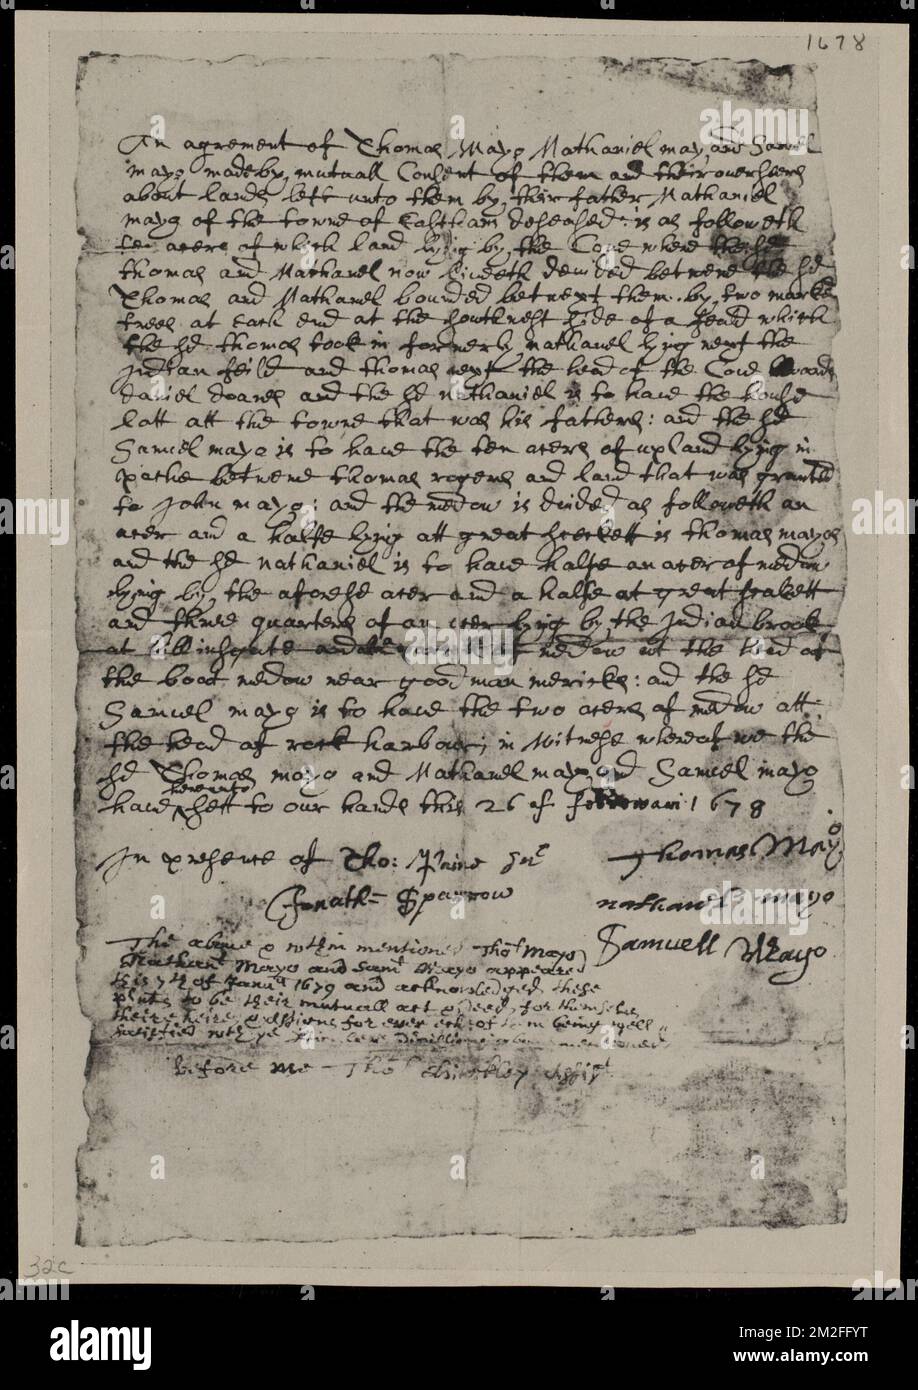 1678
An agrement of Thomas Mayo Nathaniel mayo and Samuel
mayo made by mutuall Consent of them and their overseers
about lands left unto them by their father Nathaniel
mayo of the towne of Eastham deseased: is as followeth
ten acers of which land lying by the Cove where the sd
thomas and Nathanel now liveth devided betwene the sd
Thomas and Nathanel bounded betwext them by two marked
trees at Each end at the southwest side of a which
the sd thomas took in formerly nathanel lying next the
Indian feild and thomas next the head of the Cove
daniel doanes and the sd nathaniel is to have the house
lott att the towne that was his fathers: and the sd
Samuel mayo is to have the ten acers of upland lying in
poche betwene thomas rogers and land that was granted
to John mayo: and the medow is divided as followeth an
acer and a halfe lying att great is thomas mayos
and the sd nathaniel is to have halfe an acer of medow
lying by the aforesd acer and a halfe at great
and three quarters of an acer lying by the Indian brook
at billinsgate and the medow at the head of
the boat medow near goodman mericks: and the sd
Samuel mayo is to have the two acers of medow att
the head of rock harbour; in Witness whereof we the
sd Thomas mayo and Nathanel mayo and Samuel mayo
have hereunto sett to our hands this 26 of 1678
In presence of Tho: Paine Snr
Jonath= Sparrow
Thomas Mayo
nathanel mayo
Samuell Mayo
The above & within mentioned Thos Mayo
Nathanl Mayo and Saml Mayo appeared
this 7th of Janua 1679 and acknowledged these
to be their mutuall act & deed, for themselves
their heires, for ever each of them being well
satisfied with ye mentioned
before me - Tho Hinckley Assist
32c
alamy
Image ID: 2M2FFYT
www.alamy.com